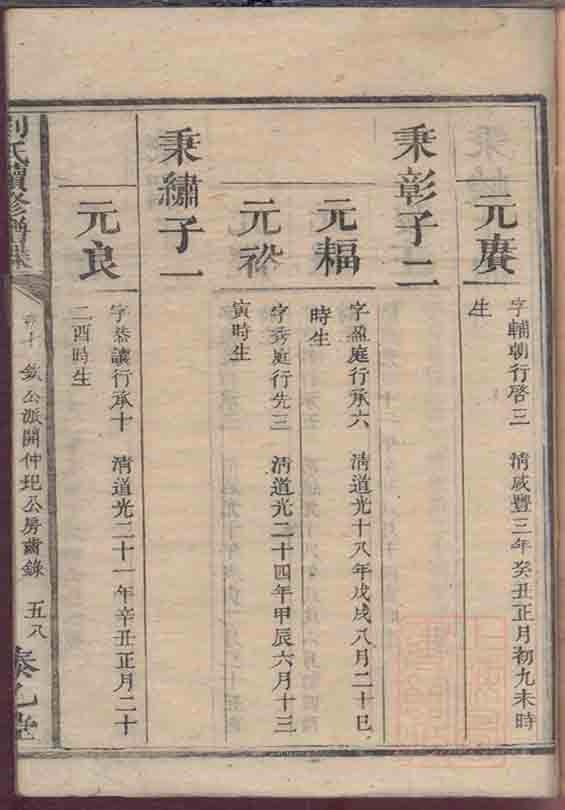 元賡
字輔朝行啓三 清咸豐三年癸丑正月初九未時
生
秉彰子二
元輻
字盈庭行承六 清道光十八年戊戌八月二十巳
時生
元裕
字秀庭行先三 清道光二十四年甲辰六月十三
寅時生
秉繡子一
元良
字恭讓行承十 清道光二十一年辛丑正月二十
二酉時生
劉氏續修譜
卷十 公派開仲玘公房齒錄 五八